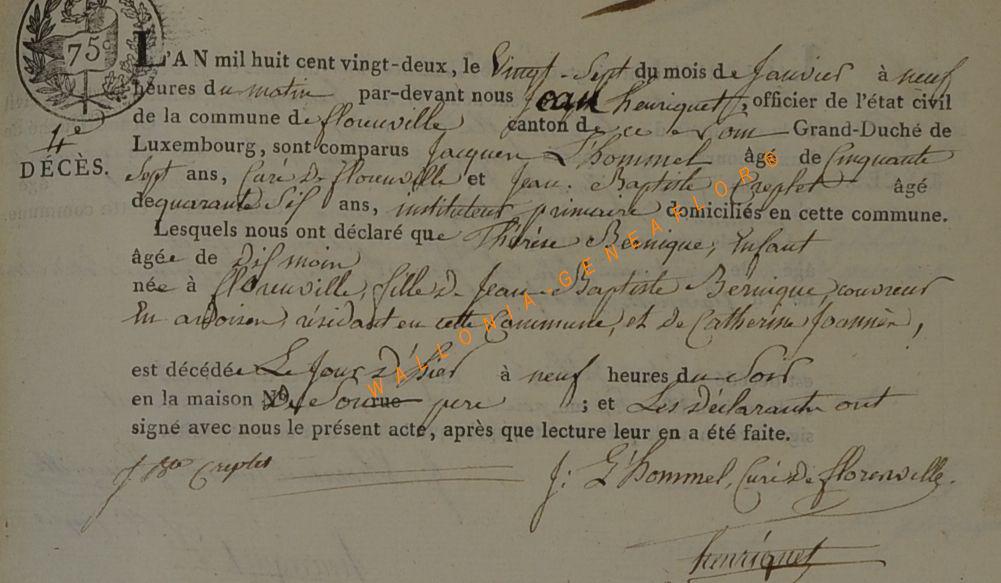 75
4e
DÉCÈS.
L'AN mil huit cent vingt-deux, le Vingt-Sept du mois de Janvier à neuf
heures du matin par-devant nous Jean henriquet, officier de l'état civil
de la commune de florenville canton de ce Nom Grand-Duché de
Luxembourg, sont comparus Jacques L'hommel âgé de Cinquante
Sept ans, Curé de florenville et Jean Baptiste Creplet âgé
de quarante Six ans, instituteur primaire domiciliés en cette commune.
Lesquels nous ont déclaré que Thérèse Bernique, Enfant
âgée de Dix mois
née à florenville, fille de Jean Baptiste Bernique, couvreur
En ardoises, résidant en cette Commune, et de Catherine Joannès,
est décédée Le Jour d'hier à neuf heures du Soir
en la maison de Son père ; et Les Déclarants ont
signé avec nous le présent acte, après que lecture leur en a été faite.
J. Bte Creplet
J: L'hommel, Curé de florenville.
henriquet
WALLONIA-GENEA.FLORO